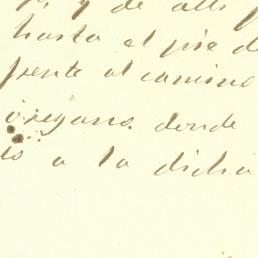 y de alli p
hasta el pie d
frente al camino
oregano. donde
is a la dicha